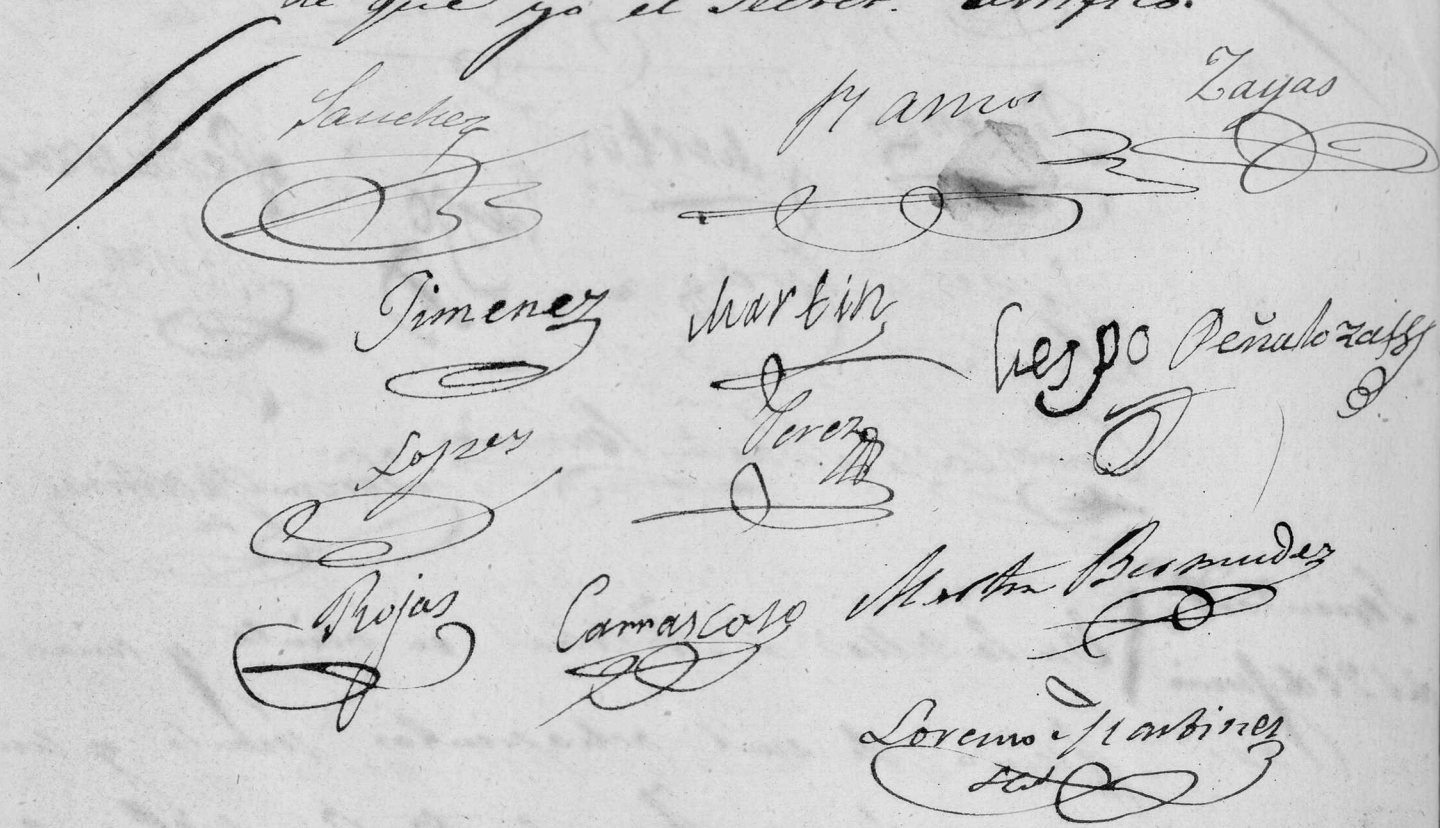 de que yo el Secret. Certifico.
Sanchez Ramos Zayas
Jimenez Martin Crespo Peñaloza
Lopez Perez
Rojas Carrascoso Bermudez
Lorenzo Martinez
Srio